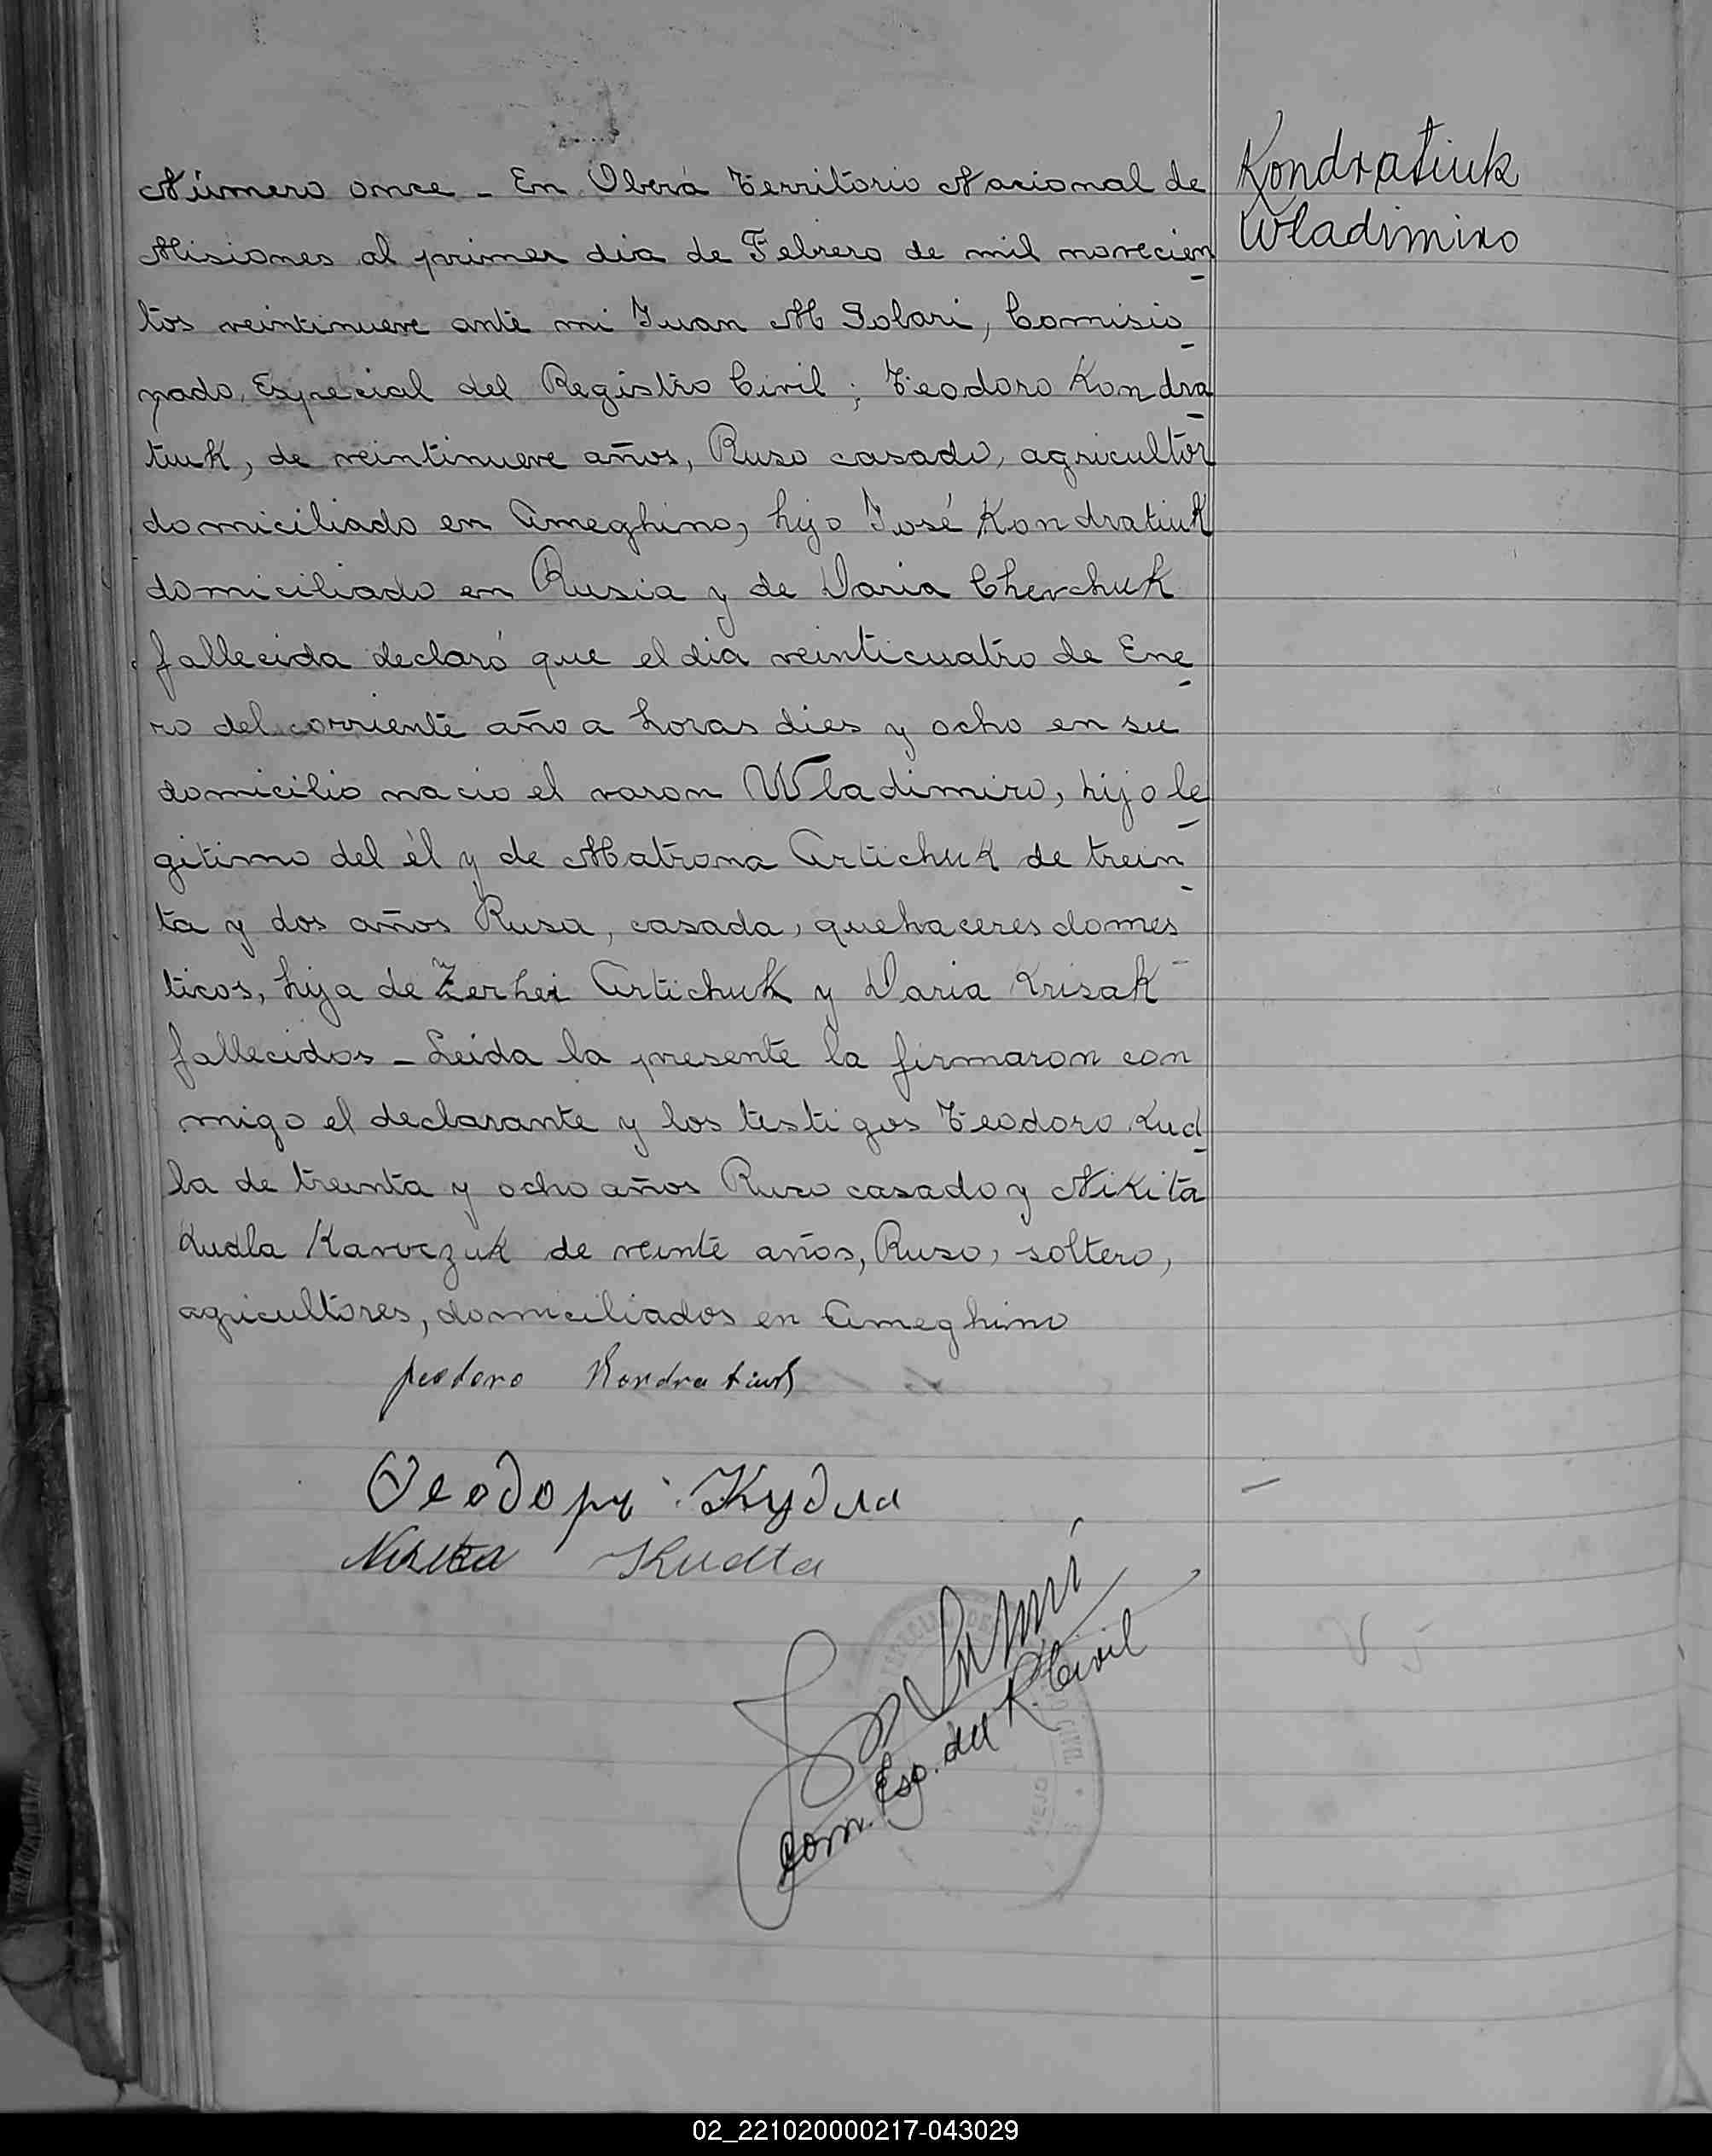 Número once - En Oberá Territorio Nacional de
Misiones al primer dia de Febrero de mil novecien
tos veintinueve ante mi Juan M Solari, Comisio
nado Especial del Registro Civil; Teodoro Kondra
tiuk, de veintinueve años, Ruso casado, agricultor
domiciliado en Ameghino, hijo José Kondratiuk
domiciliado en Rusia y de Daria Chevchuk
fallecida declaró que el dia veinticuatro de Ene
ro del corriente año a horas dies y ocho en su
domicilio nacio el varon Wladimiro, hijo le
gitimo del él y de Matrona Artichuk de trein
ta y dos años Rusa, casada, quehaceres domes
ticos, hija de Zerhei Artichuk y Daria Krisak
fallecidos - Leida la presente la firmaron con
migo el declarante y los testigos Teodoro Kud
la de treinta y ocho años Ruso casado y Nikita
Kudla Karvczuk de veinte años, Ruso, soltero,
agricultores, domiciliados en Ameghino
Kondratiuk
Wladimiro
peodoro Kondratiuk
Ѳеодоръ Кудла
Nikita Kudla
Com. Esp. del R. Civil
CIVIL
VIEJO
02_221020000217-043029